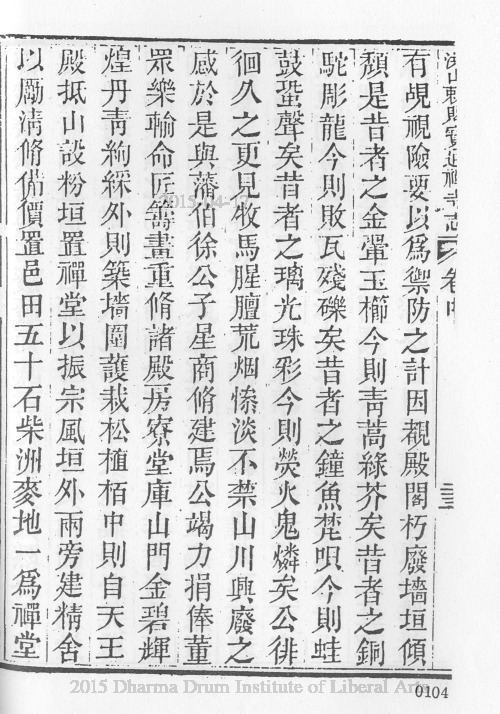 山敕賜寶通禪寺志 卷中
有覘視險要以爲禦防之計因覩殿閣朽廢墻垣傾
頽是昔者之金翬玉櫛今則靑蒿綠芥矣昔者之銅
駝彫龍今則敗瓦殘礫矣昔者之鐘魚梵唄今則蛙
鼓蛩聲矣昔者之璃光珠彩今則熒火鬼燐矣公徘
徊久之更見牧馬腥膻荒烟慘淡不禁山川興廢之
感於是與藩伯徐公子星商脩建焉公竭力捐俸董
眾樂輸命匠籌畫重脩諸殿房寮堂庫山門金碧輝
煌丹靑絢綵外則築墻圍護栽松植栢中則自天王
殿抵山設粉垣置禪堂以振宗風垣外兩旁建精舍
以勵淸脩備價置邑田五十石柴洲麥地一爲禪堂
2015-04-17
2015 Dharma Drum Institute of Liberal Arts
0104